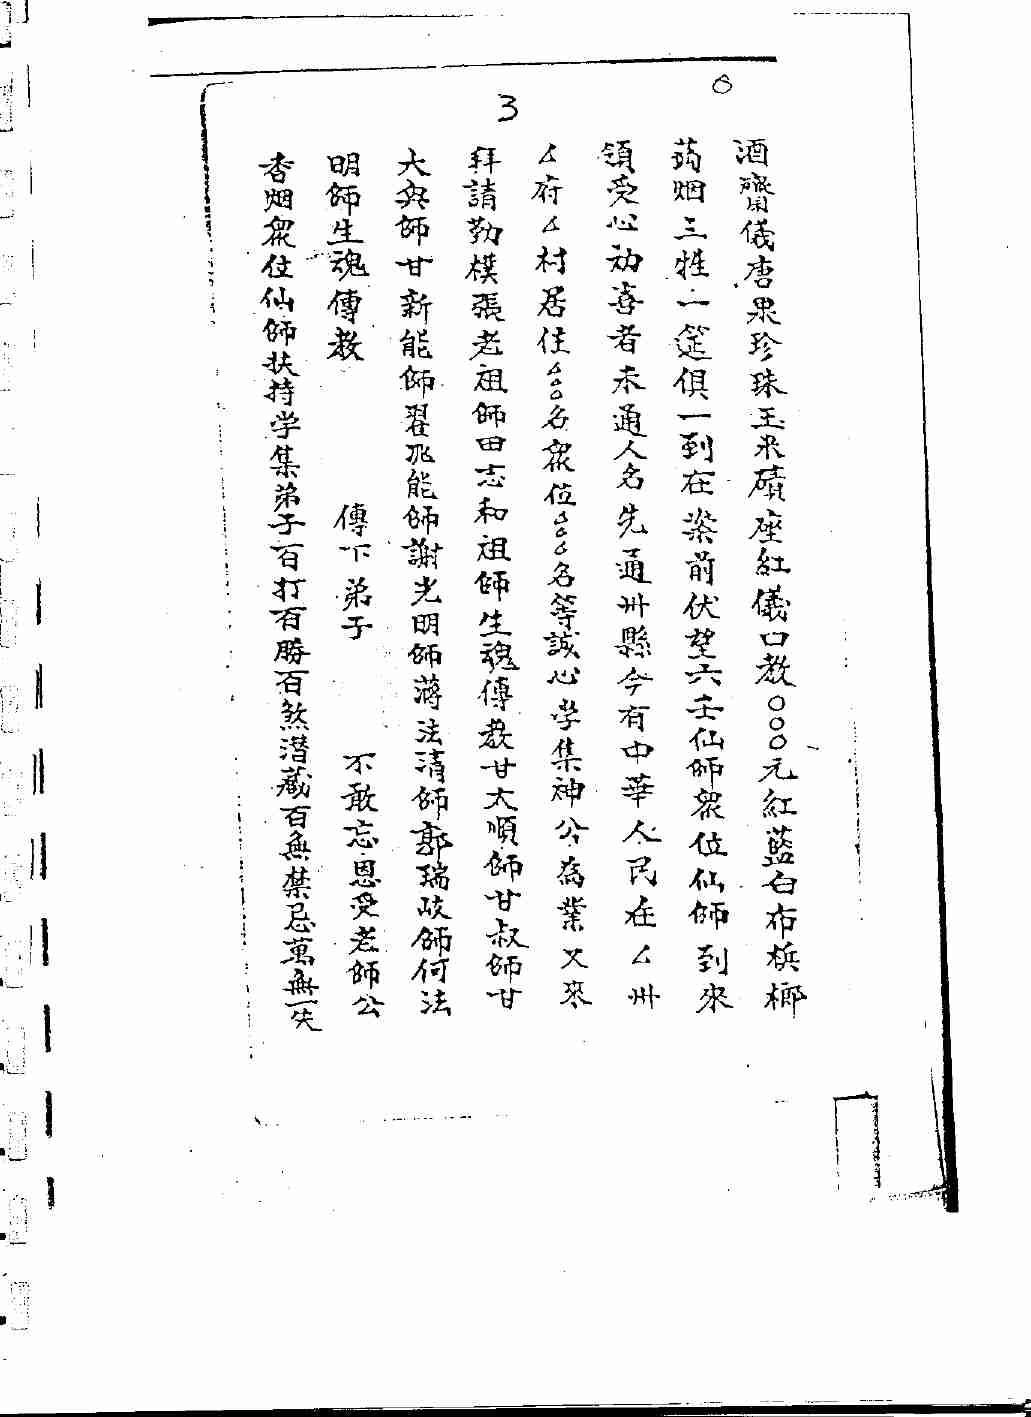 3
6
酒齋儀唐果珍珠玉米磧座紅儀口教〇〇〇元紅藍白布梹榔
葯烟三牲一筵俱一到在案前伏望六壬仙師衆位仙師到來
領受心劝喜者未通人名先通州縣今有中華人民在厶州
厶府厶村居住厶〇〇名衆位厶厶厶名等誠心学集神公為業又來
拜請勤樸張老祖師田志和祖師生魂傳教甘大順師甘叔師甘
大興師甘新能師翟兆能師謝光明師蔣法清師郭瑞岐師何法
明師生魂傳教 傳下弟子 不敢忘恩受老師公
香烟衆位仙師扶持学集弟子百打百勝百煞潜藏百無禁忌萬無一失